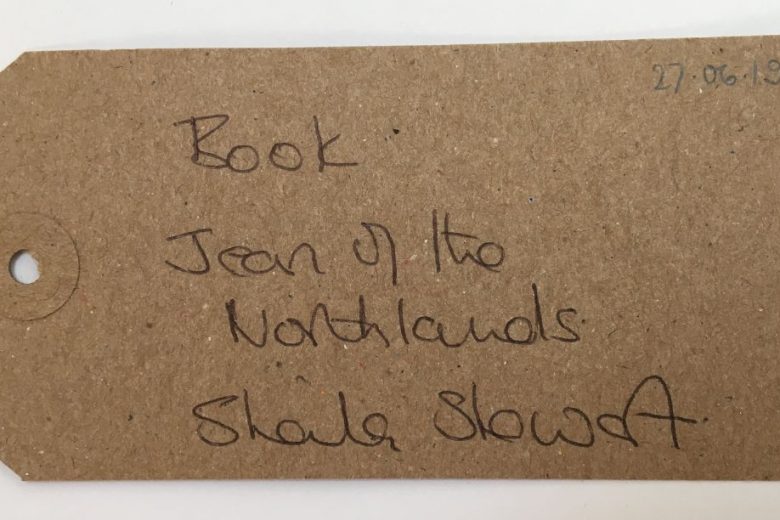 27.06.19
Book
Jean of the
Northlands
Sheila Stewart